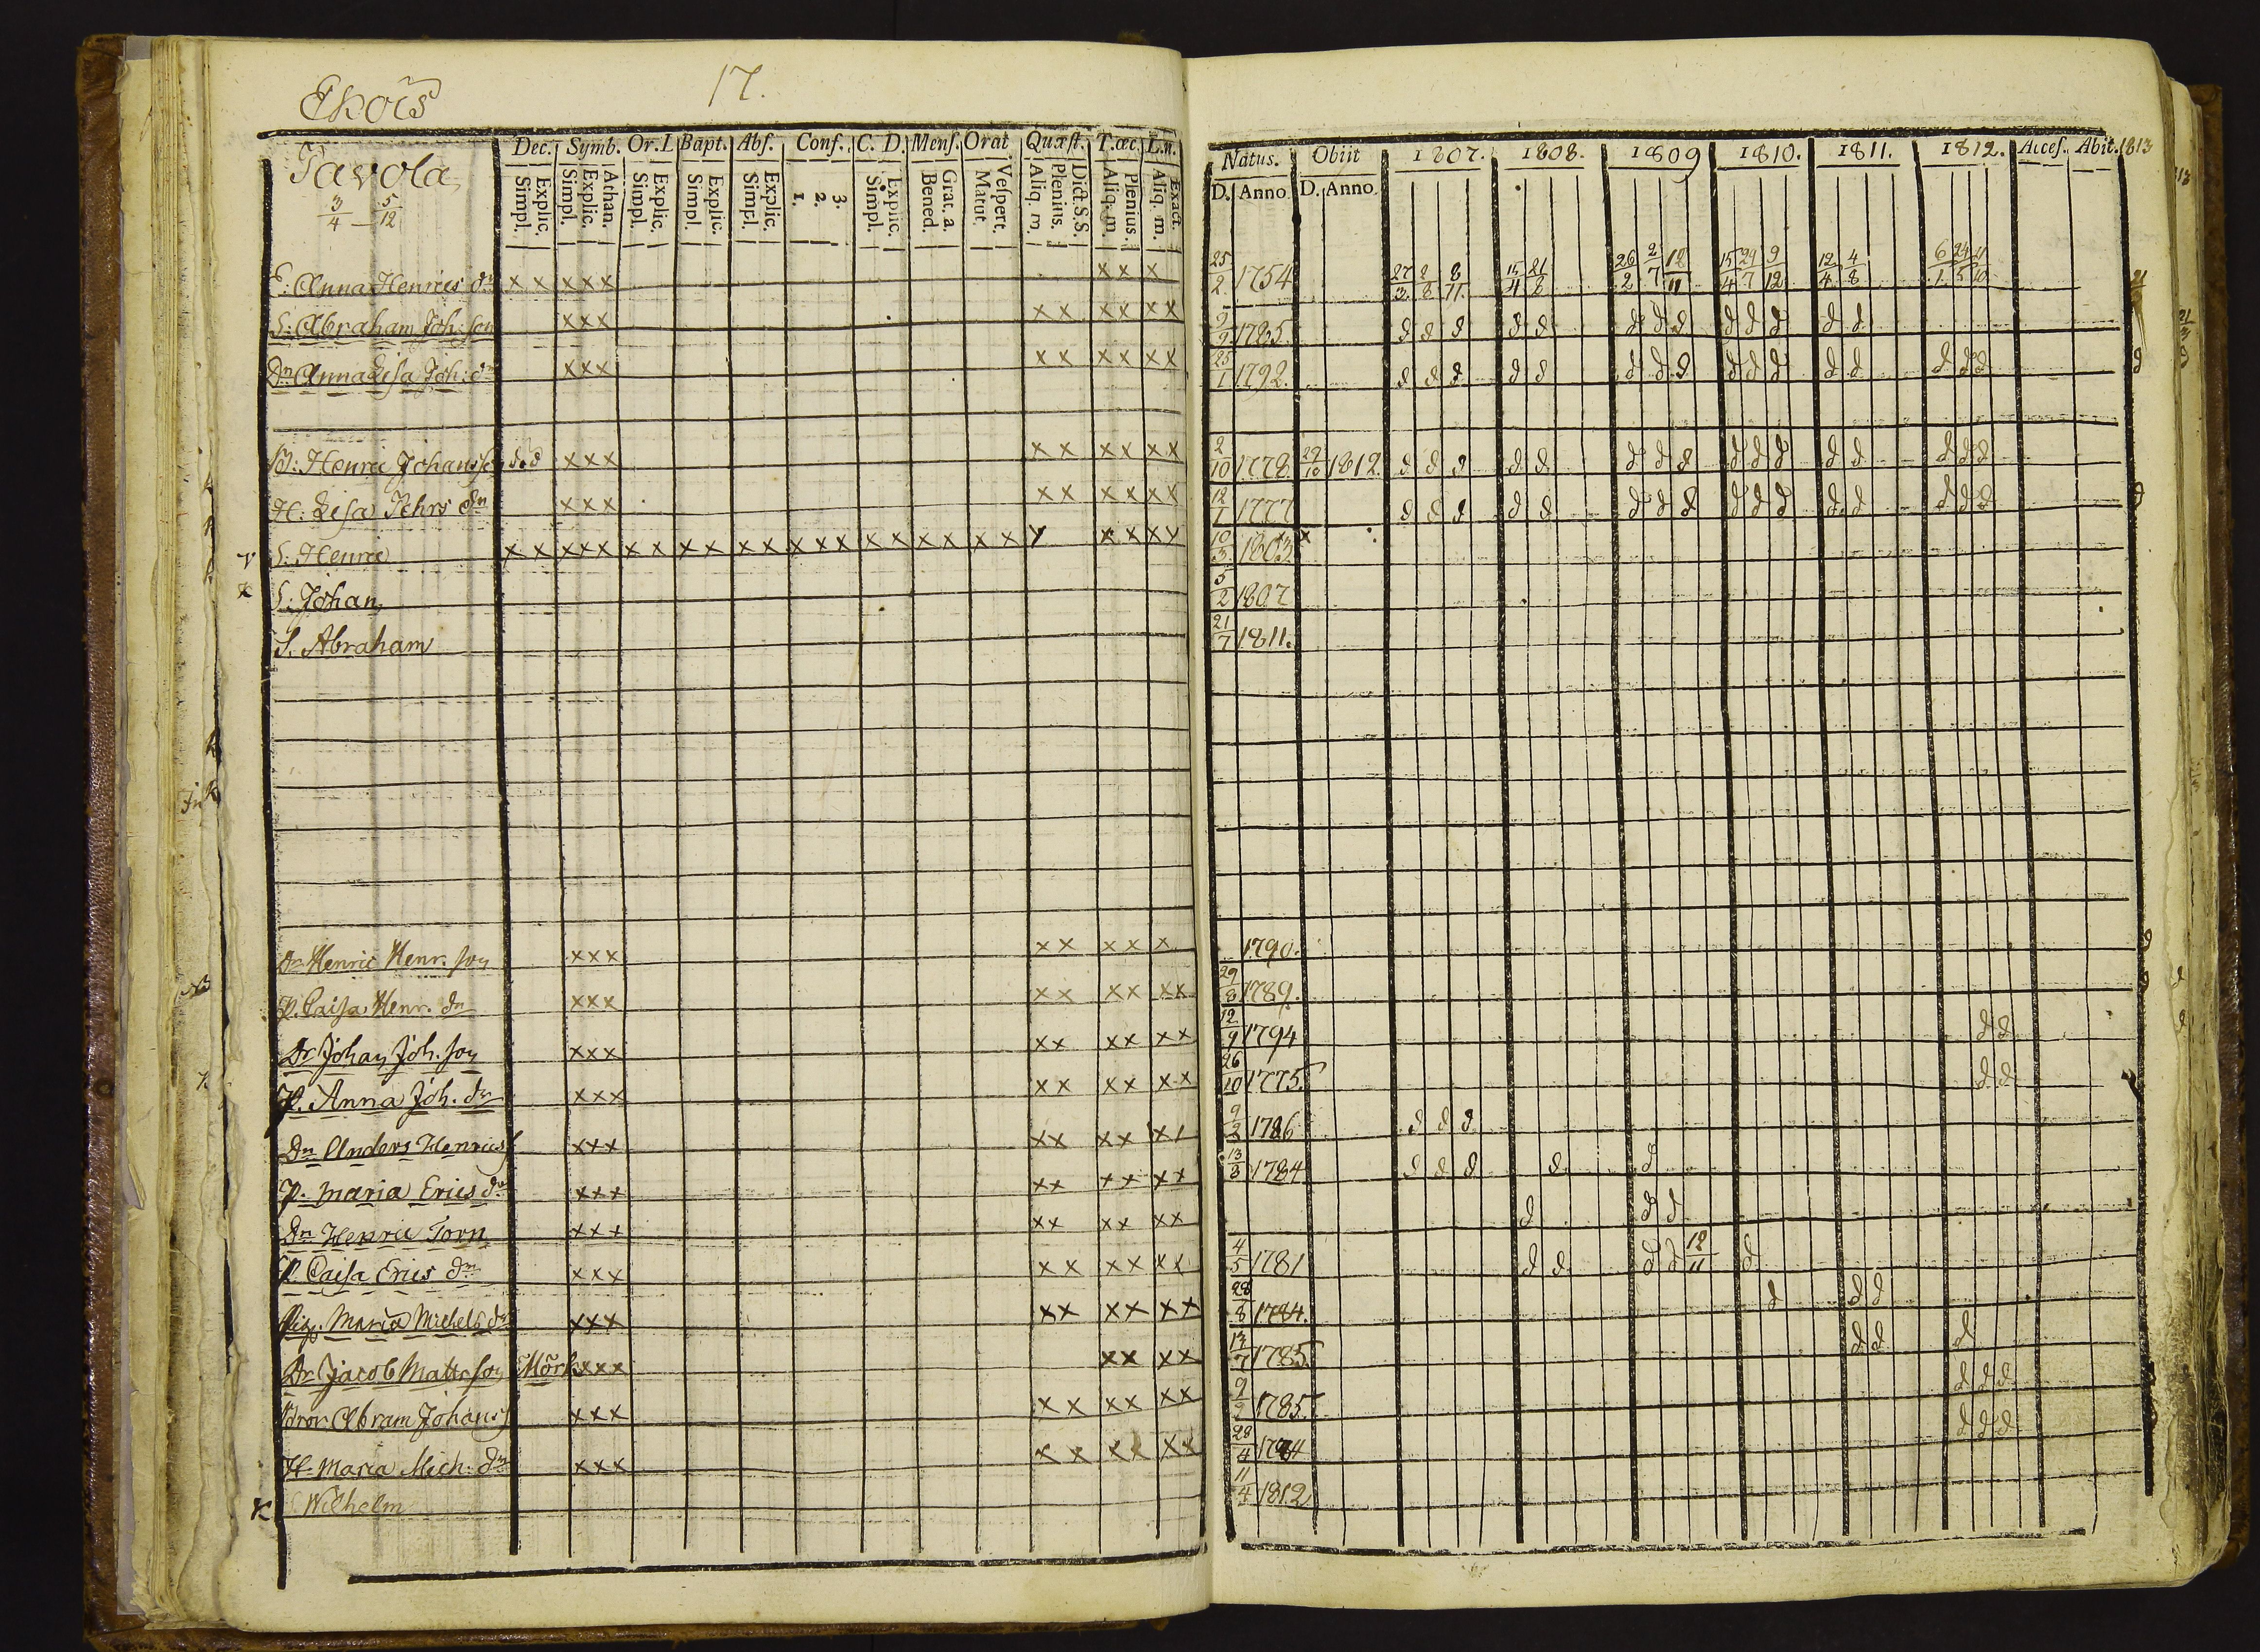 Ekois
17.
Dec. Symb. Or. I Bapt. Abſ. Conf. C. D. Menſ. Orat Quæſt. T. œc. L. n.
Simpl. Explic. Simpl. Explic. Athan. Simpl. Explic. Simpl. Explic. Simpl. Explic. 1. 2. 3. Simpl. Explic. Bened. Grat. a. Matut. Veſpert. Aliq. m. Plenius. Dict. S. S. Aliq. m. Plenius. Aliq. m. Exact.
Natus. Obiit 1807. 1808. 1809 1810. 1811. 1812. Acceſ. Abit. 1813
D. Anno D. Anno.
Tavola
3/4 — 5/12
E: Anna Henrics dr x x x x x x x x 25/2 1754 27/3 2/8 8/11 15/4 21/8 26/2 2/7 12/11 15/4 29/7 9/12 12/4 4/8 6/1 24/5
S: Abraham Joh: son x x x x x x x x x 9/9 1785. d d d d d d d d d d d d d
Dr Anna Lisa Joh: dr x x x x x x x x x 25/1 1792. d d d d d d d d d d d d d d d d d
Henric Johansson d. d x x x x x x x x x 2/10 1778 29/10 1812. d d d d d d d d d d d d d d d d
H: Lisa Jehrs dn x x x x x x x x x 12/1 1777 d d d d d d d d d d d d d d d d d
S: Henric x x x x x x x x x x x x x x x x x x x x x x x x x 10/3 1803 x
S: Johan 5/2 1807
S. Abraham 21/7 1811.
Dr Henric Henr. son x x x x x x x x 1790. d
P. Caisa Henr. dr x x x x x x x x x 29/8 1789. d
Dr Johan Joh. son x x x x x x x x x 12/9 1794 d d
P. Anna Joh. dr x x x x x x x x x 26/10 1775. d d
Dn Anders Henrics x x x x x x x x x 9/2 1786 d d d
P. Maria Erics dr x x x x x x x x x 13/8 1784 d d d d d
Dn Henric Torn x x x x x x x x x d d d
P. Caisa Erics dn x x x x x x x x x 4/5 1781 d d d d 12/11 d
Pig. Maria Michels dn x x x x x x x x x 28/8 1784. d d d
Dr Jacob Matts son Mörk x x x x x x x 13/7 1785 d d d
Abram Johanss x x x x x x x x x 9/9 1785. d d d
H. Maria Mich: dn x x x x x x x x x 28/4 1784 d d d
Wilhelm 11/4 1812